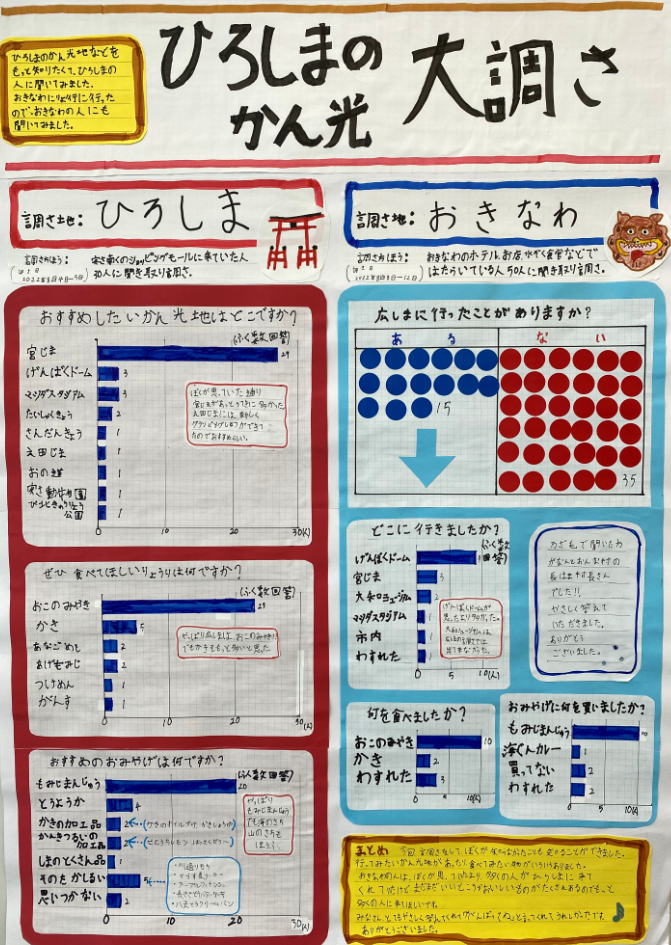 ひろしまの
かん光
大調さ
ひろしまのかん光地などを
もっと知りたくて、ひろしまの
人に聞いてみました。
おきなわにりょ行に行った
ので、おきなわの人にも
聞いてみました。
調さ地：ひろしま
調さほう：
ショッピングモールに来ていた人
30人に聞き取り調さ。
おすすめしたいかん光地はどこですか？
(ふく数回答)
宮じま 29
げんばくドーム 3
マツダスタジアム 3
たいしゃくきょう 2
さんだんきょう 1
え田じま 1
おのみち 1
安さ動物園 1
びほくきゅうりょう公園 1
0 10 20 30(人)
ぼくが思っていた通り
宮じまがあっとうてきに多かった。
え田じまには、新しく
グランピングしせつができて
いるのでおすすめらしい。
ぜひ食べてほしいりょうりは何ですか？
(ふく数回答)
おこのみやき
かき 5
あなごめし 2
あげもみじ 2
つけめん 1
がんす 1
0 10 20 30(人)
やっぱり広しまは、おこのみやき!!
でもかきももっと多いと思った
おすすめのおみやげは何ですか？
(ふく数回答)
もみじまんじゅう 20
とうようか 4
かきの加工品 2
かんきつるいの加工品 2
しまのとくさん品 1
そのたかしるい 5
思いつかない 2
0 10 20 30(人)
やっぱり
もみじまんじゅう
でも海のさち
山のさちも
ほうふ。
・川通りもち
・八天どうクリームパン
調さ地：おきなわ
調さほう：
おきなわのホテル、お店、水ぞく食堂などで
はたらいている人50人に聞き取り調さ。
広しまに行ったことがありますか？
ある ない
15
35
どこに行きましたか？
(ふく数
げんばくドーム
宮じま 3
大和ミュージアム 2
マツダスタジアム 1
市内 1
わすれた 1
0 5 10(人)
げんばくドームが
思ったより多かった。
大和ミュージアムは、
広しまの調さでは
出てきなかった。
おんな村の
長はま村長さん
でした!!
やさしく答えて
いただきました。
ありがとう
ございました。
何を食べましたか？
おこのみやき 10
かき 2
わすれた 3
0 5 10(人)
おみやげに何を買いましたか？
もみじまんじゅう
海ぐんカレー 1
買ってない 2
わすれた 2
0 5 10(人)
まとめ 今回、調さをして、ぼくが知らなかったことも知ることができました。
行ってみたいかん光地があったり、食べてみたい物がいろいろありました。
おきなわの人は、ぼくが思っていたより多くの人がひろしまに来て
くれていたけど、まだまだいいところやおいしいものがたくさんあるのでもっと
多くの人に来てほしいです。
みなさん、とてもやさしく答えてくれて「がんばってね」と言ってくれてうれしかったです。
ありがとうございました。